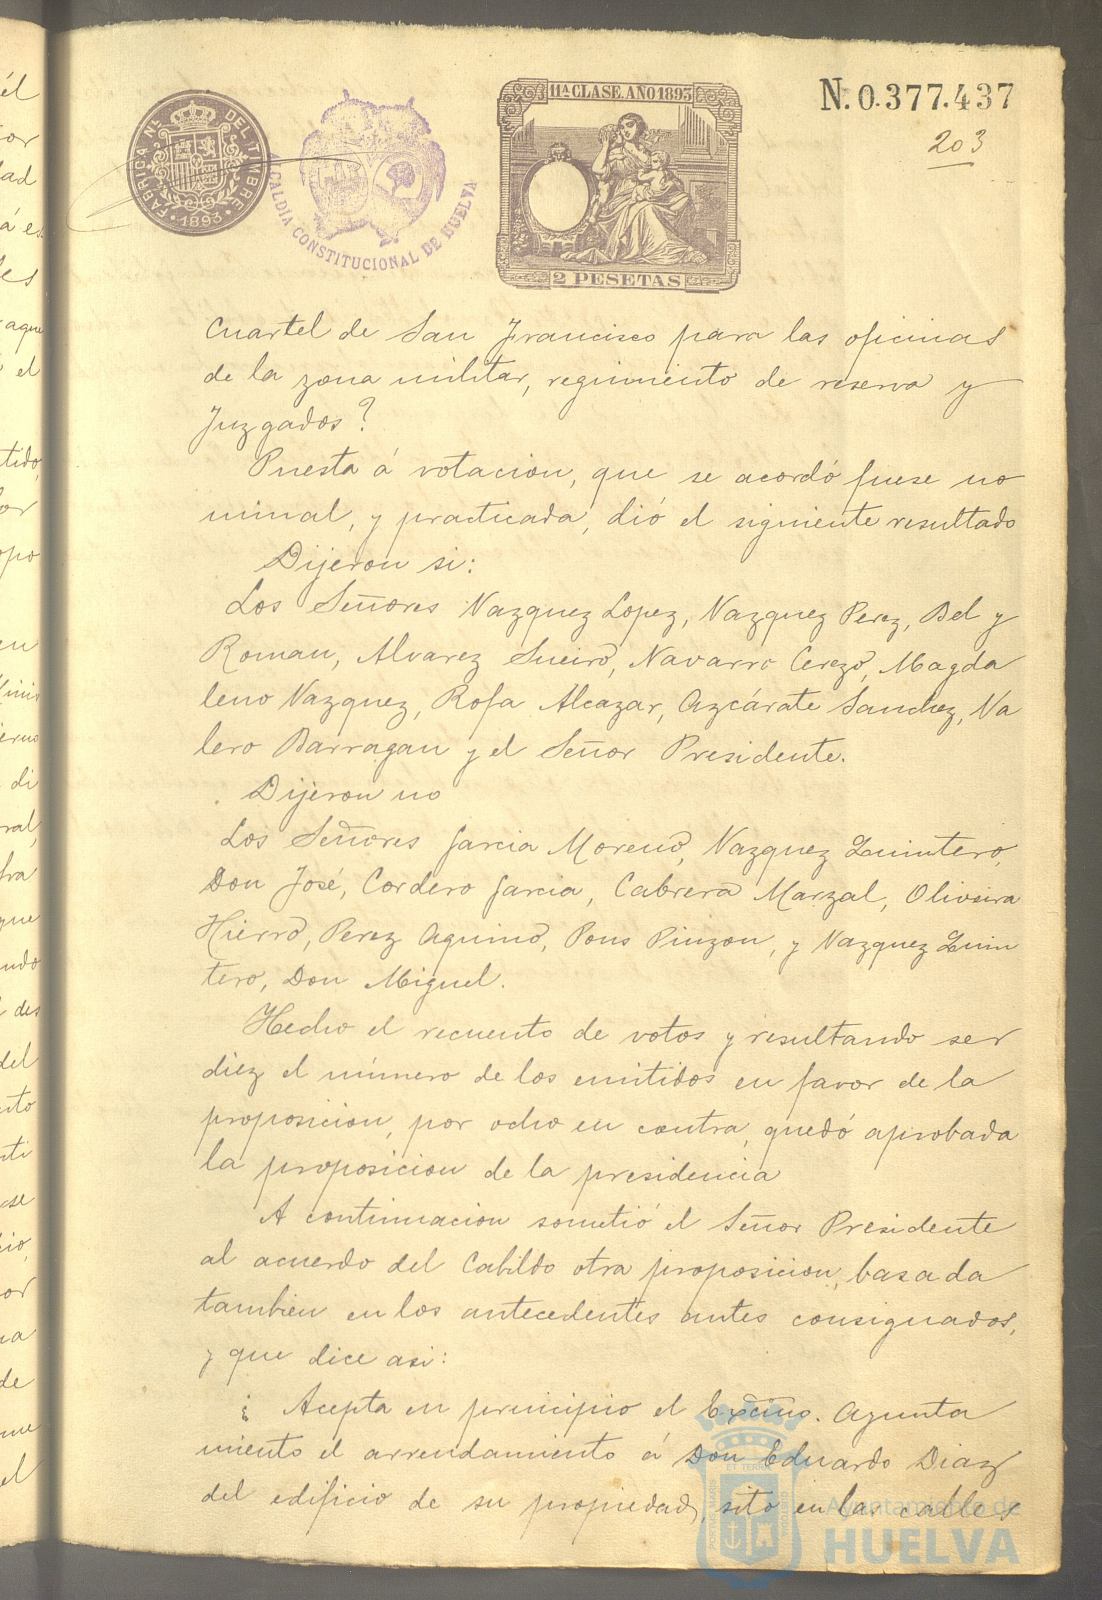 N. 0.377.437
203
FABRICA Nal. DEL TIMBRE
1893
ALCALDIA CONSTITUCIONAL DE HUELVA
11ª CLASE. AÑO 1893
2 PESETAS
Cuartel de San Francisco para las oficinas
de la zona militar, regimiento de reserva y
Juzgados?
Puesta á votacion, que se acordó fuese no
minal, y practicada, dió el siguiente resultado
Dijeron si:
Los Señores Vazquez Lopez, Vazquez Perez, Bel y
Roman, Alvarez Sueiro, Navarro Cerezo, Magda
leno Vazquez, Rofa Alcazar, Azcárate Sanchez, Va
lero Barragan y el Señor Presidente.
Dijeron no
Los Señores Garcia Moreno, Vazquez Quintero,
Don José, Cordero Garcia, Cabrera Marzal, Oliveira
Hierro, Perez Aquino, Pons Pinzon, y Vazquez Quin
tero, Don Miguel.
Hecho el recuento de votos y resultando ser
diez el número de los emitidos en favor de la
proposicion, por ocho en contra, quedó aprobada
la proposicion de la presidencia
A continuacion sometió el Señor Presidente
al acuerdo del Cabildo otra proposicion, basada
tambien en los antecedentes antes consignados,
y que dice asi:
¿Acepta en principio el Excmo. Ayunta
miento el arrendamiento á Don Eduardo Diaz
del edificio de su propiedad, sito en las calles
Ayuntamiento de
HUELVA